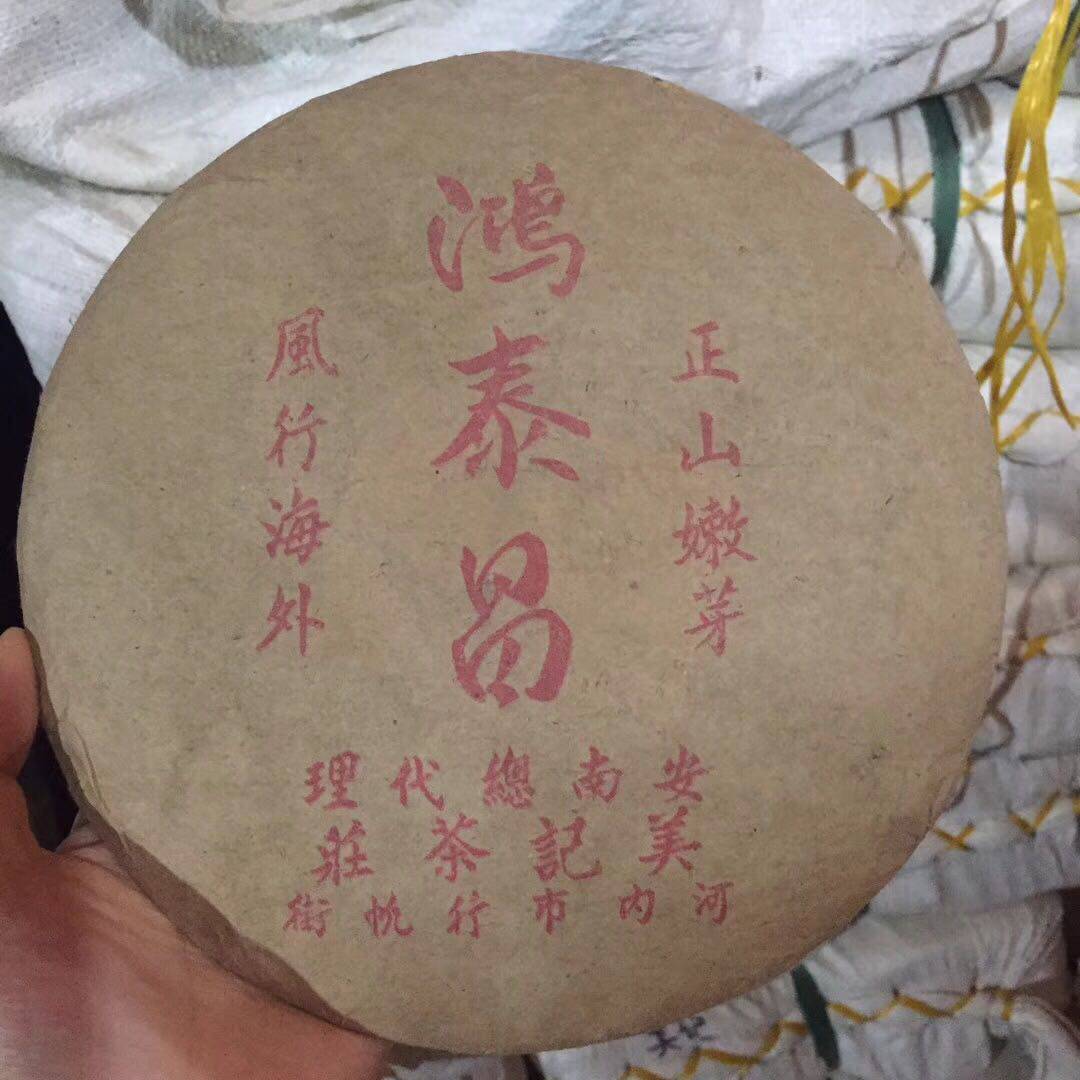 正山嫩芽
鴻泰昌
風行海外
安南總代理
美記茶莊
河内市行帆街